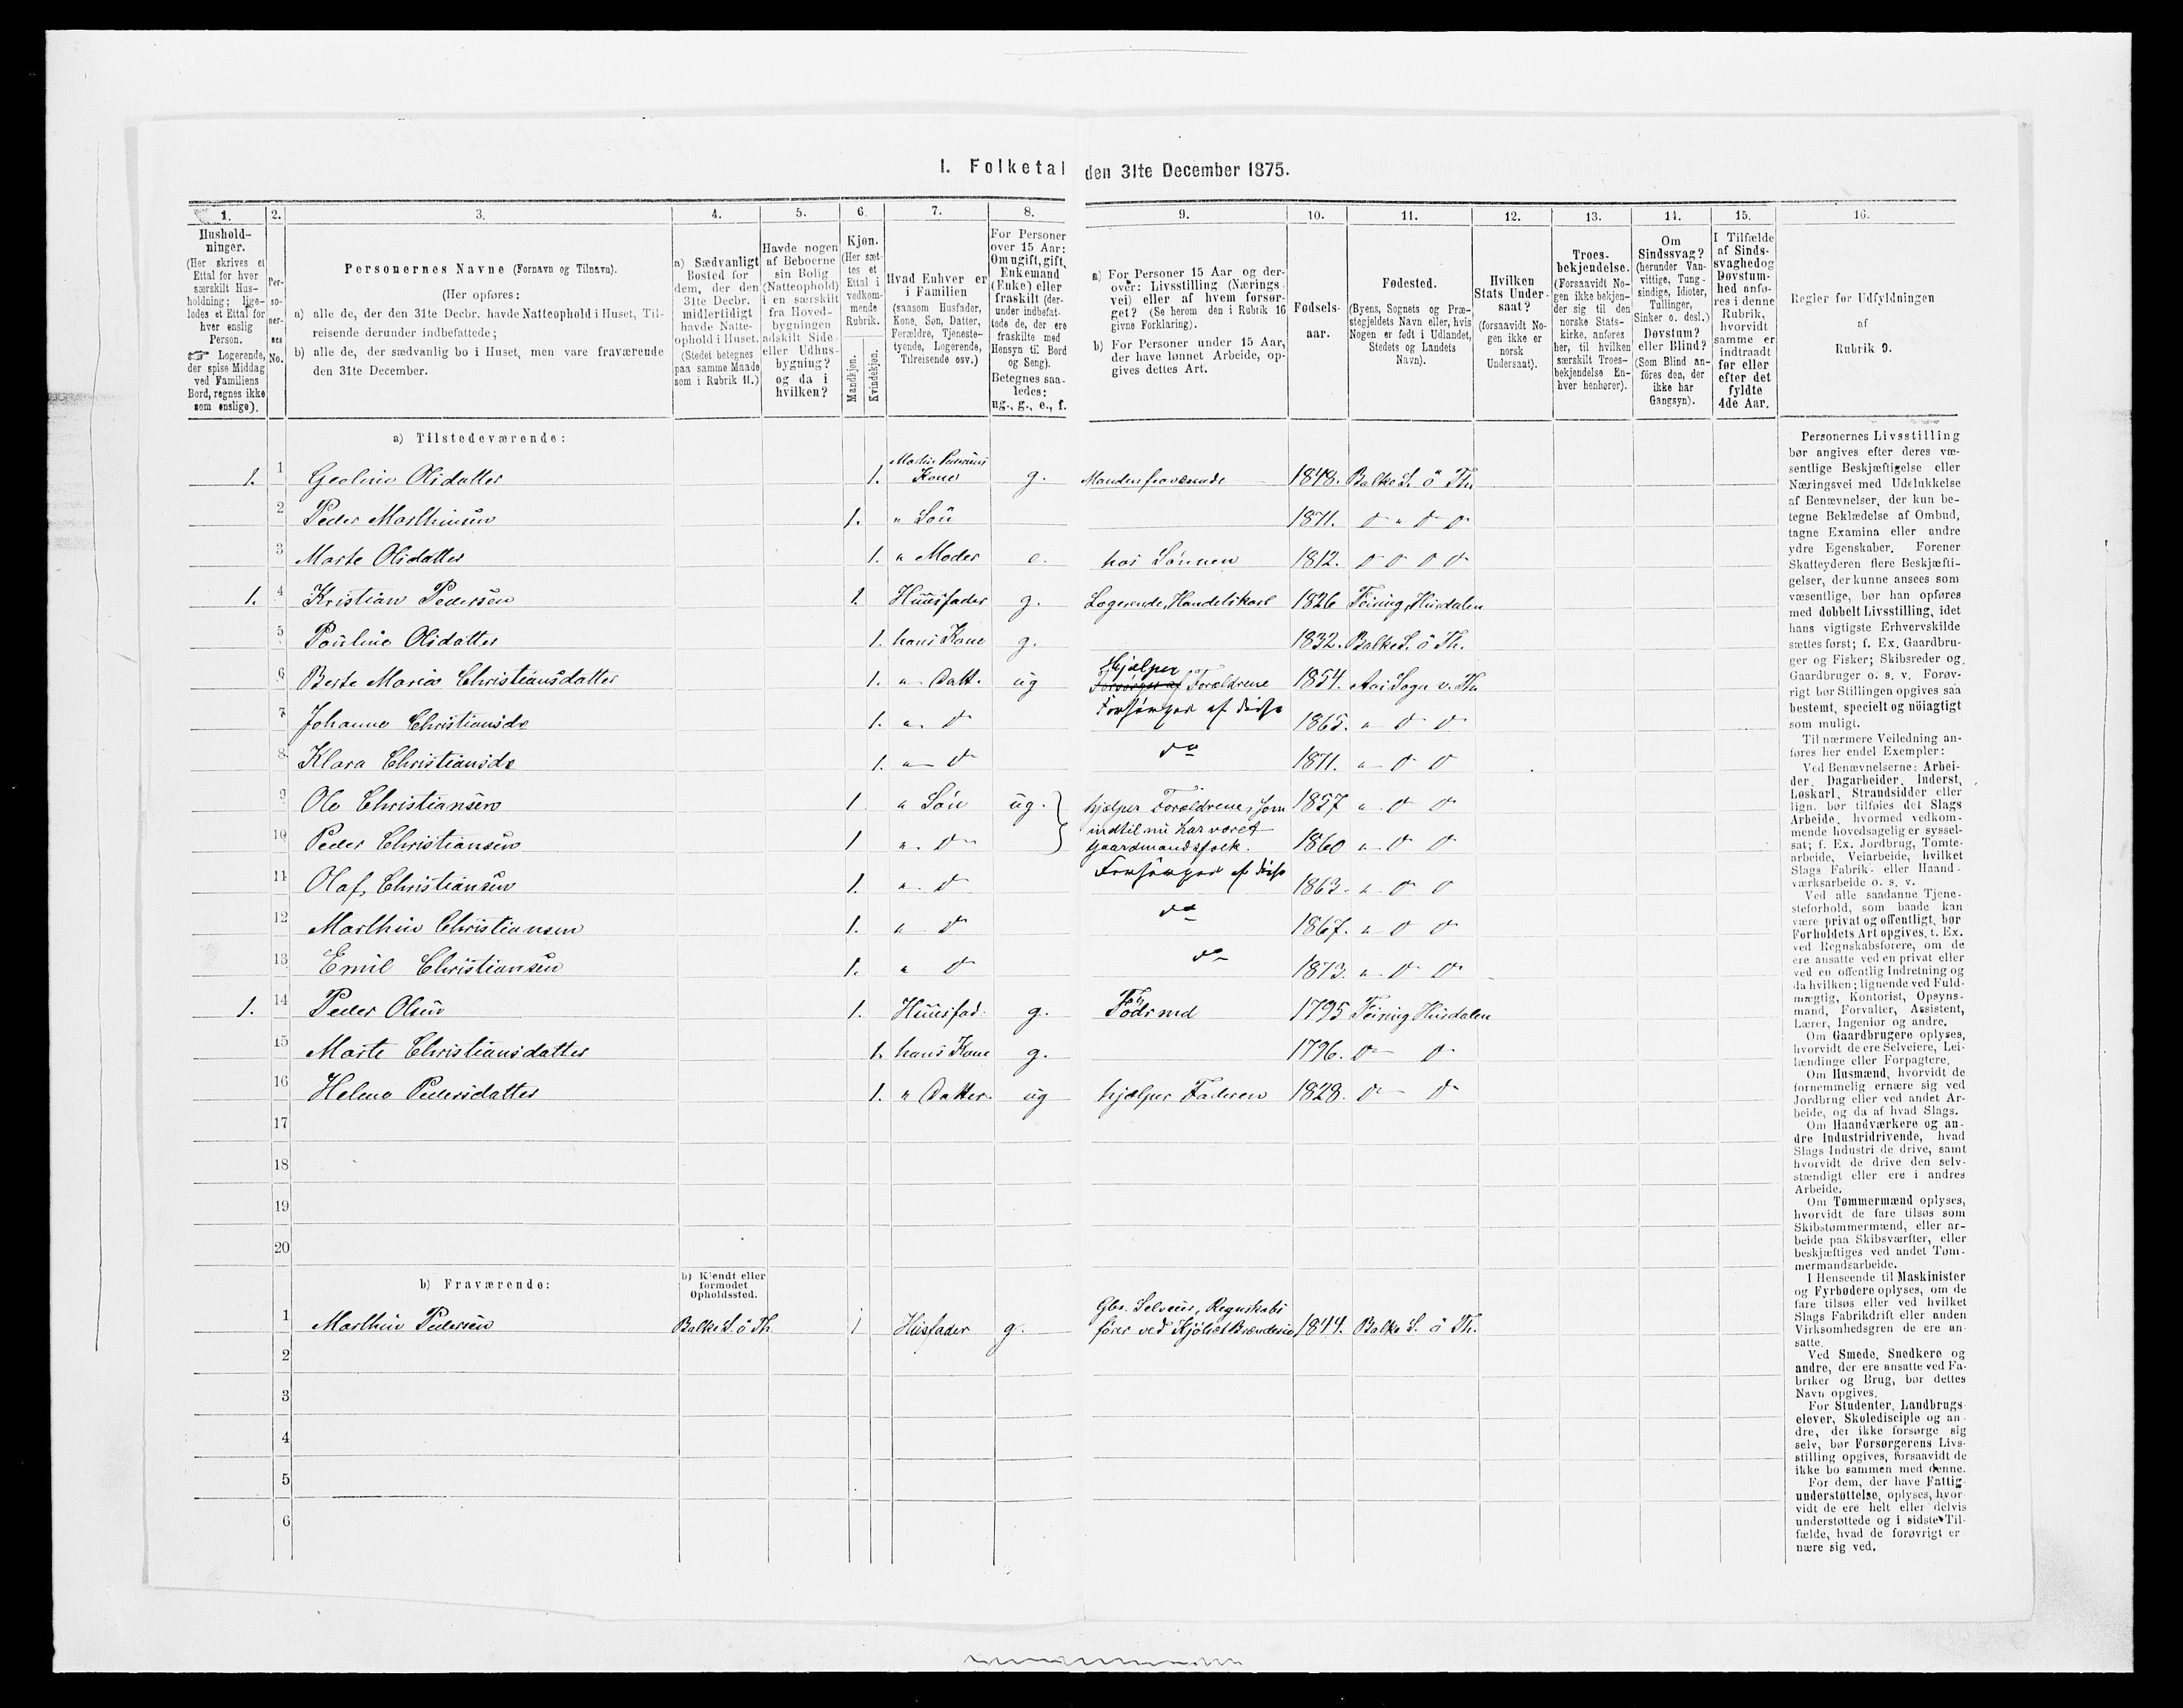 I. Folketal den 31te December 1875.
1. 2. 3. 4. 5. 6. 7. 8. 9. 10. 11. 12. 13. 14. 15. 16.
Hushold-
ninger.
(Her skrives et
Ettal for hver
særskilt Hus-
holdning; lige-
ledes et Ettal for
hver enslig
Person.
☞ Logerende,
der spise Middag
ved Familiens
Bord, regnes ikke
som enslige).
Per-
so-
ner-
nes
No.
Personernes Navne (Fornavn og Tilnavn).
(Her opføres:
a) alle de, der den 31te Decbr. havde Natteophold i Huset, Til-
reisende derunder indbefattede;
b) alle de, der sædvanlig bo i Huset, men vare fraværende
den 31te December.
a) Sædvanligt
Bosted for
dem, der den
31te Decbr.
midlertidigt
havde Natte-
ophold i Huset.
(Stedet betegnes
paa samme Maade
som i Rubrik 11.)
Havde nogen
af Beboerne
sin Bolig
(Natteophold)
i en særskilt
fra Hoved-
bygningen
adskilt Side-
eller Udhus-
bygning?
og da i
hvilken?
Kjøn.
(Her sæt-
tes et
Ettal i
vedkom-
mende
Rubrik.
Mandkjøn.
Kvindekjøn.
Hvad Enhver er
i Familien
(saasom Husfader,
Kone, Søn, Datter,
Forældre, Tjeneste-
tyende, Logerende,
Tilreisende osv.)
For Personer
over 15 Aar:
Om ugift, gift,
Enkemand
(Enke) eller
fraskilt (der-
under indbefat-
tede de, der ere
fraskilte med
Hensyn til Bord
og Seng).
Betegnes saa-
ledes:
ug., g., e., f.
a) For Personer 15 Aar og der-
over: Livsstilling (Nærings-
vei) eller af hvem forsør-
get? (Se herom den i Rubrik 16
givne Forklaring).
b) For Personer under 15 Aar,
der have lønnet Arbeide, op-
gives dettes Art.
Fødsels-
aar.
Fødested.
(Byens, Sognets og Præ-
stegjeldets Navn eller, hvis
Nogen er født i Udlandet,
Stedets og Landets
Navn).
Hvilken
Stats Under-
saat?
(forsaavidt No-
gen ikke er
norsk
Undersaat).
Troes-
bekjendelse.
(Forsaavidt No-
gen ikke bekjen-
der sig til den
norske Stats-
kirke, anføres
her, til hvilken
særskilt Troes-
bekjendelse En-
hver henhører).
Om
Sindssvag?
(herunder Van-
vittige, Tung-
sindige, Idioter,
Tullinger,
Sinker o. desl.)
Døvstum?
eller Blind?
(Som Blind an-
føres den, der
ikke har
Gangsyn).
I Tilfælde
af Sinds-
svaghed og
Døvstum-
hed anfø-
res i denne
Rubrik,
hvorvidt
samme er
indtraadt
før eller
efter det
fyldte
4de Aar.
Regler for Udfyldningen
af
Rubrik 9.
a) Tilstedeværende:
1. 1 Geoline Olsdatter 1. Martin Pedersens Kone g. Manden fraværende 1848. Balke S. ö Th.
2 Peder Marthinsen 1. " Søn 1871. d " d d
3 Marte Olsdatter 1. " Moder e. hos Sønnen 1812. d d d d
1. 4 Kristian Pedersen 1. Huusfader g. Logerende, Handelskarl 1826 Feiring, Hurdalen
5 Pauline Olsdatter 1. hans Kone g. 1832. Balke S. ö Th.
6 Berte Maria Christiansdatter 1. " Datt. ug Hjælper Forsørget af Forældrene 1854. Aas Sogn v. Th
7 Johanne Christiansd. 1. " d Forsørges af disse 1865. " d d
8 Klara Christiansd. 1. " d do 1871. " d d
9 Ole Christiansen 1. " Søn ug. hjælper Forældrene, som 1857 " d d
10 Peder Christiansen 1 " d indtil nu har været Gaardmandsfolk. 1860 " d d
11 Olaf Christiansen 1. " d Forsørges af disse 1863. " d d
12 Marthin Christiansen 1. " d do 1867. " d d
13 Emil Christiansen 1. " d do 1873. " d d
1. 14 Peder Olsen 1. Huusfad. g. Födsmd 1795 Feiring Hurdalen
15 Marte Christiansdatter 1. hans Kone g. 1796. d d
16 Helene Pedersdatter 1. " Datter. ug hjælper Faderen 1828. d d
17
18
19
20
b) Fraværende:
b) Kjendt eller
formodet
Opholdssted.
1 Marthin Pedersen Balke S. ö Th. 1 Husfader g. Gbr. Selveier, Regnskabsfører ved 1844. Balke S. ö Th.
2
3
4
5
6
Personernes Livsstilling
bør angives efter deres væ-
sentlige Beskjæftigelse eller
Næringsvei med Udelukkelse
af Benævnelser, der kun be-
tegne Beklædelse af Ombud,
tagne Examina eller andre
ydre Egenskaber. Forener
Skatteyderen flere Beskjæfti-
gelser, der kunne ansees som
væsentlige, bør han opføres
med dobbelt Livsstilling, idet
hans vigtigste Erhvervskilde
sættes først; f. Ex. Gaardbru-
ger og Fisker; Skibsreder og
Gaardbruger o. s. v. Forøv-
rigt bør Stillingen opgives saa
bestemt, specielt og nöiagtigt
som muligt.
Til nærmere Veiledning an-
føres her endel Exempler:
Ved Benævnelserne: Arbei-
der, Dagarbeider, Inderst,
Løskarl, Strandsidder eller
lign. bør tilføies det Slags
Arbeide, hvormed vedkom-
mende hovedsagelig er syssel-
sat; f. Ex. Jordbrug, Tomte-
arbeide, Veiarbeide, hvilket
Slags Fabrik- eller Haand-
værksarbeide o. s. v.
Ved alle saadanne Tjene-
steforhold, som baade kan
være privat og offentligt, bør
Forholdets Art opgives, t. Ex.
ved Regnskabsførere, om de
ere ansatte ved en privat eller
ved en offentlig Indretning og
da hvilken; lignende ved Fuld-
mægtig, Kontorist, Opsyns-
mand, Forvalter, Assistent,
Lærer, Ingeniør og andre.
Om Gaardbrugere oplyses,
hvorvidt de ere Selveiere, Lei-
lændinge eller Forpagtere.
Om Husmænd, hvorvidt de
fornemmelig ernære sig ved
Jordbrug eller ved andet Ar-
beide, og da af hvad Slags.
Om Haandværkere og an-
dre Industridrivende, hvad
Slags Industri de drive, samt
hvorvidt de drive den selv-
stændigt eller ere i andres
Arbeide.
Om Tømmermænd oplyses,
hvorvidt de fare tilsøs som
Skibstømmermænd, eller ar-
beide paa Skibsværfter, eller
beskjæftiges ved andet Tøm-
mermandsarbeide.
I Henseende til Maskinister
og Fyrbødere oplyses, om de
fare tilsøs eller ved hvilket
Slags Fabrikdrift eller anden
Virksomhedsgren de ere an-
satte.
Ved Smede, Snedkere og
andre, der ere ansatte ved Fa-
briker og Brug, bør dettes
Navn opgives.
For Studenter, Landbrugs-
elever, Skoledisciple og an-
dre, der ikke forsørge sig
selv, bør Forsørgerens Livs-
stilling opgives, forsaavidt de
ikke bo sammen med denne.
For dem, der have Fattig-
understøttelse, oplyses, hvor-
vidt de ere helt eller delvis
understøttede og i sidste Til-
fælde, hvad de forøvrigt er-
nære sig ved.